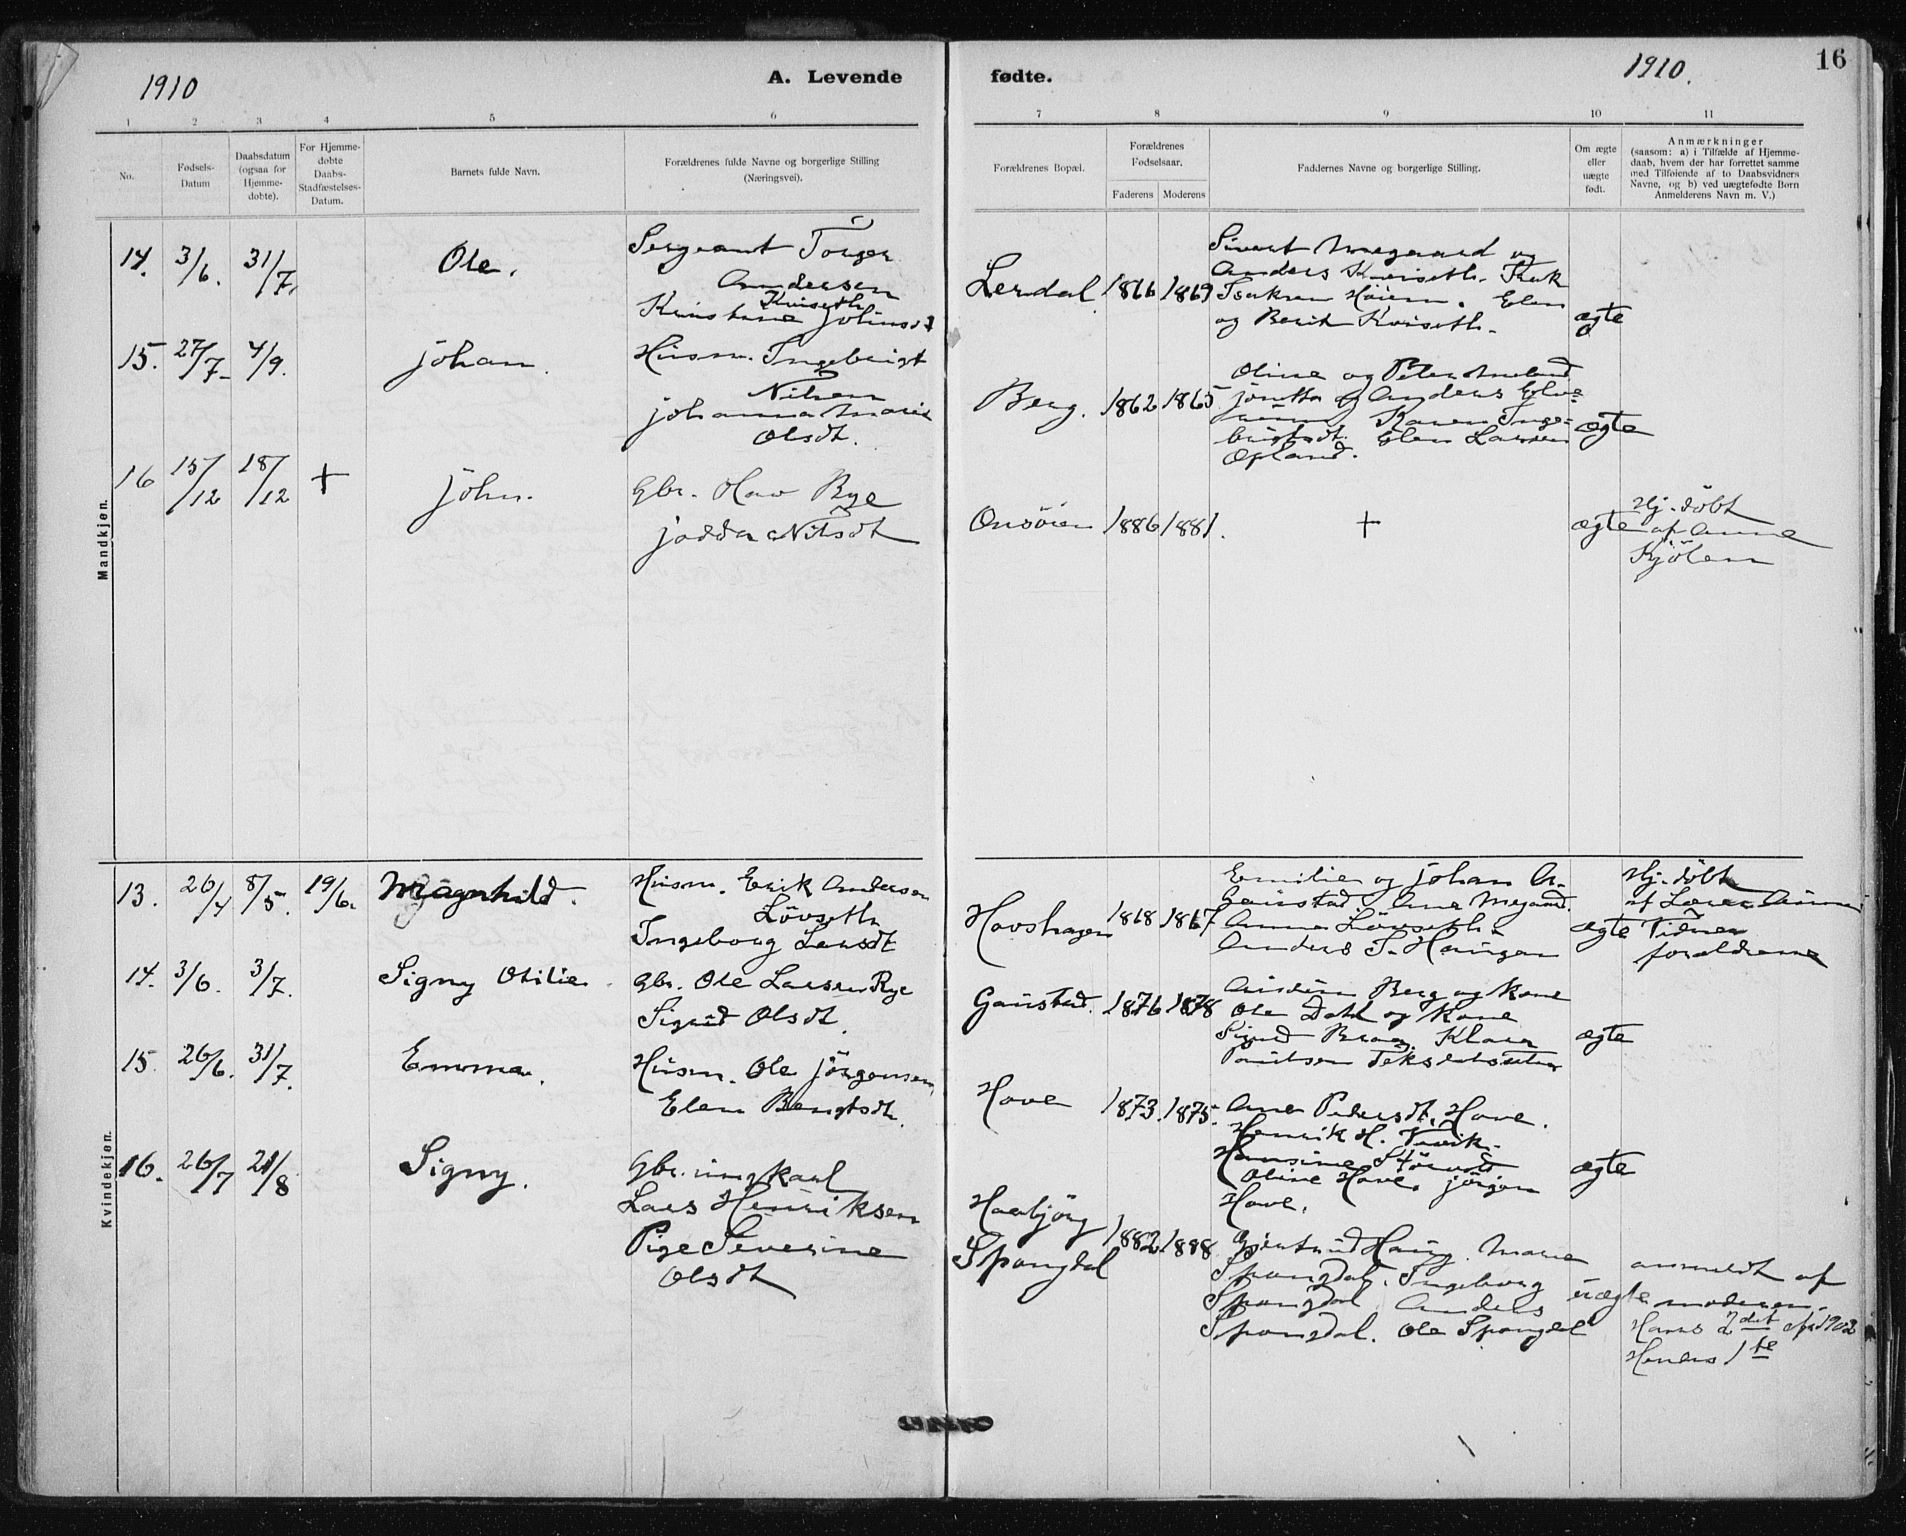 1910
A. Levende
fødte.
1910.
16
1
2
3
4
5
6
7
8
9
10
11
No.
Fødsels-
Datum
Daabsdatum
(ogsaa for
Hjemme-
døbte).
For Hjemme-
døbte
Daabs-
Stadfæstelses-
Datum.
Barnets fulde Navn.
Forældrenes fulde Navne og borgerlige Stilling
(Næringsvei).
Forældrenes Bopæl.
Forældrenes
Fødselsaar.
Faderens
Moderens
Faddernes Navne og borgerlige Stilling.
Om ægte
eller
uægte
født.
Anmærkninger
(saasom: a) i Tilfælde af Hjemme-
daab, hvem der har forrettet samme
med Tilføiende af to Daabsvidners
Navne, og b) ved uægtefødte Børn
Anmelderens Navn m. V.)
Mandkjøn.
14. 3/6. 31/7.
Ole.
Sergeant Torger
Andersen
Kviseth
Kristine Johnsdt
Lerdal 1866 1869
Sivert Megaard og
Anders Kviseth.
Isaksen Høiem. Elen
og Berit Kviseth.
ægte
15. 27/7. 4/9.
Johan.
Husm. Ingebrigt
Nilsen
Johanna Marie
Olsdt.
Berg. 1862 1865
Oline og Peter
og Anders
Karen Inge-
brigtsdt. Elen Larsen
Opland.
ægte
16 15/12 18/12 +
John.
Gbr. Olav Rye
Jodda Nilsdt
Onsøien 1886 1881.
+
ægte
Hj. døbt
af Anne
Kjølen
Kvindekjøn.
13. 26/4 8/5. 19/6.
Magnhild.
Husm. Erik Andersen
Løvseth
Ingeborg Larsdt
Hovshagen 1868 1867
Emilie og Johan A.
Gaustad. Ane Megaard.
Anna Løvseth.
Anders T. Haugen
ægte
Hj. døbt
af
forældrene
14. 3/6. 3/7.
Signy Otilie.
Gbr. Ole Larsen Rye
Sigrid Olsdt.
Gaustad. 1876 1878
Berg og Kone
Ole Dahl og Kone
Klara
Paulsen
ægte
15. 26/6. 31/7.
Emma.
Husm. Ole Jørgensen
Elen Bengtsdt.
Hove 1873. 1875.
Ane Pedersdt. Hove.
Henrik H.
Hansine
Oline Hove. Jørgen
Hove.
ægte
16. 26/7 21/8
Signy.
Gbr. ungkarl
Lars Henriksen
Pige Severine
Olsdt
Haabjørg
Spongdal
1882 1888
Gjertrud Haug. Marie
Spongdal. Ingeborg
Spongdal. Anders
Spongdal. Ole Spongdal
uægte
anmeldt af
moderen.
Hans 2det
Hendes 1te